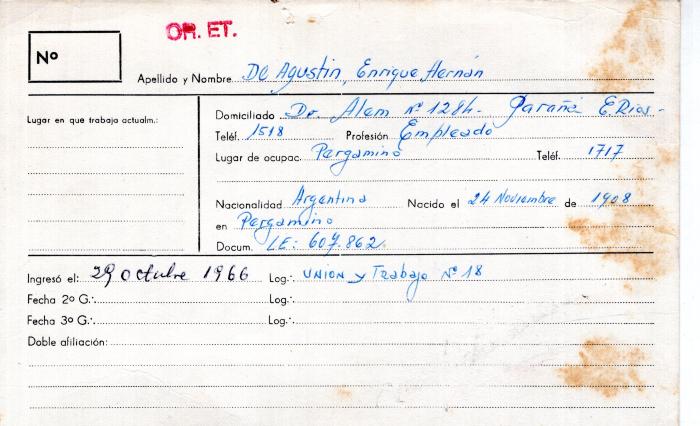 OR. ET.
Nº
Apellido y Nombre De Agustin, Enrique Hernán
Lugar en que trabaja actualm.:
Domiciliado Dr. Alem Nº 1284- Paraná E. Rios-
Teléf. 1518 Profesión Empleado
Lugar de ocupac. Pergamino Teléf. 1717
Nacionalidad Argentina Nacido el 24 Noviembre de 1908
en Pergamino
Docum. LE: 607.862.
Ingresó el: 29 octubre 1966 Log.·. UNION y Trabajo Nº 18
Fecha 2º G.·. Log.·.
Fecha 3º G.·. Log.·.
Doble afiliación: